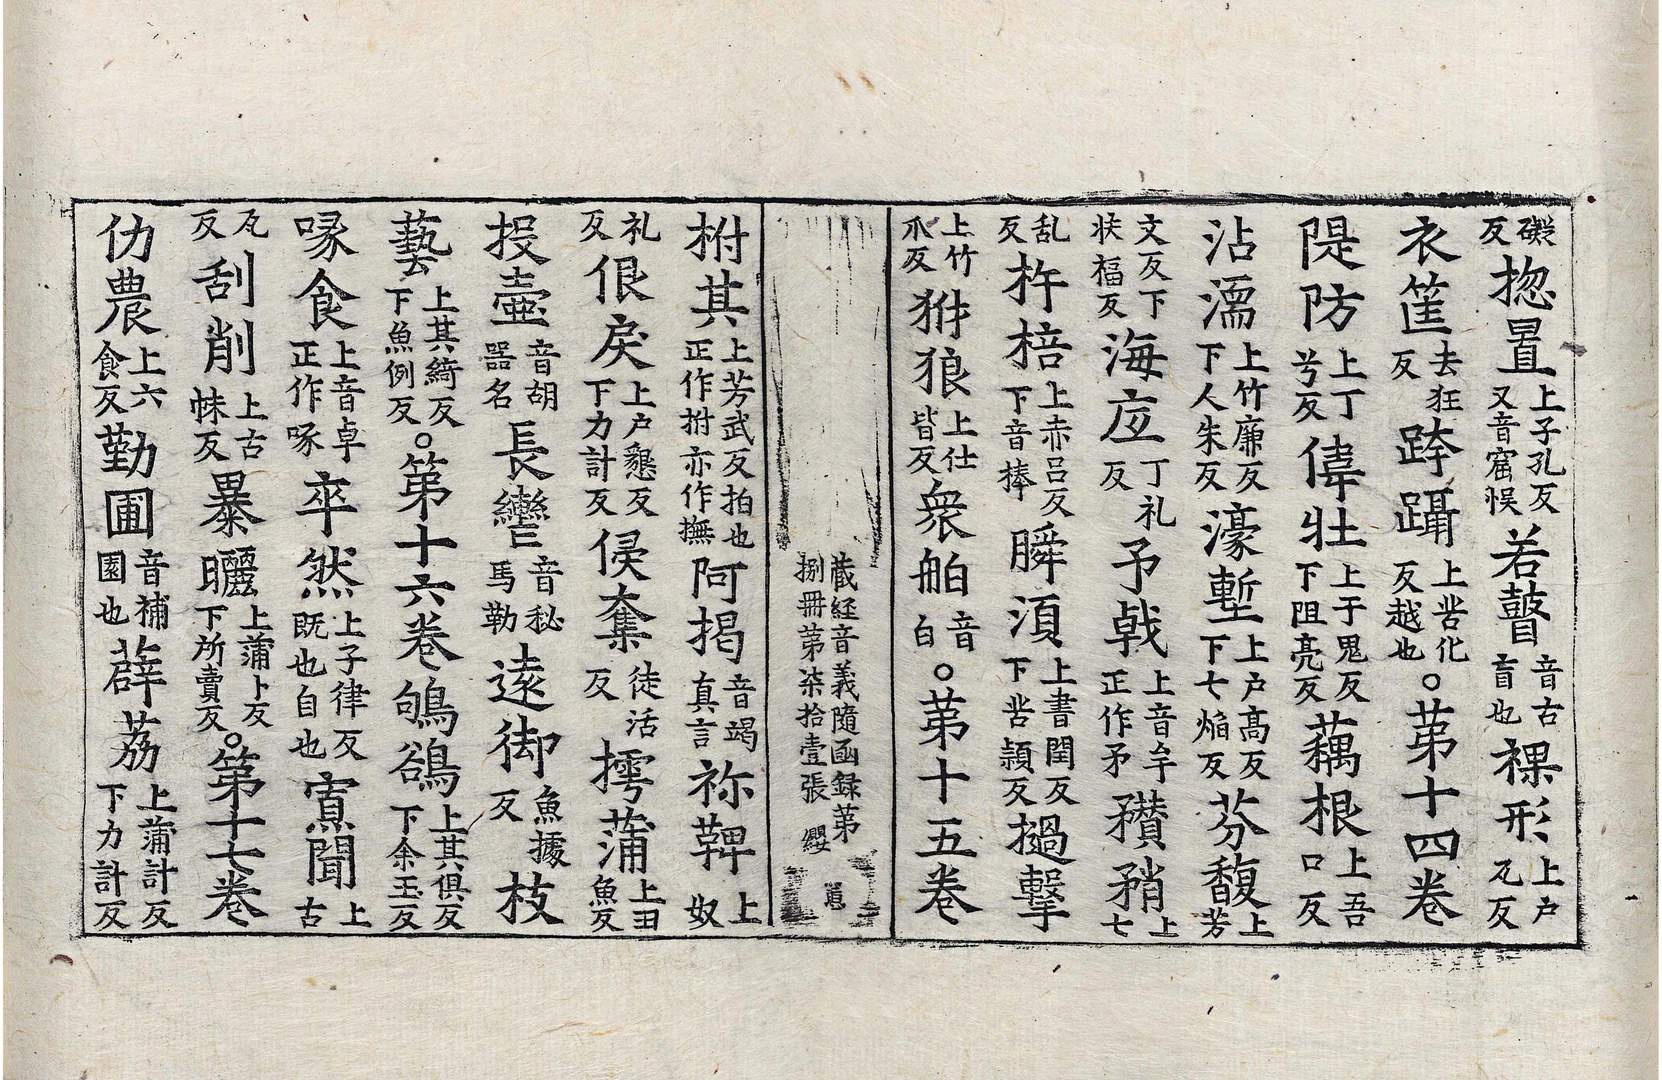 礙反揔置上子孔反又音窟悮若瞽音古盲也裸形上戶瓦反
衣篚去狂反跨躡上苦化反越也。第十四卷
隄防上丁兮反偉壯上于鬼反下阻亮反藕根上吾口反
沾濡上竹廉反下人朱反濠塹上戶高反下七焰反芬馥上芳
文反下状福反海㡳丁礼反予㦸上音牟正作矛穳矟上七
乱反杵棓上赤呂反下音棒瞬湏上書閏反下苦頴反撾擊
上竹爪反犲狼上仕皆反衆舶音白。第十五卷
藏経音義隨函録第
捌冊第柒拾壹張 纓
柎其上芳武反拍也正作拊亦作撫阿揭音竭真言祢鞞上奴
礼反佷戾上戶懇反下力計反侵奪徒活反摴蒲上丑魚反
投壷音胡器名長轡音秘馬勒逺御魚據反枝
藝上其綺反下魚例反。第十六卷鴝鵒上其俱反下余玉反
喙食上音卓正作啄卒然上子律反既也自也賔聞上古
瓦反刮削上古帓反暴曬上蒲卜反下所賣反。第十七卷
仂農上六食反勤圃音補園也薜荔上蒲計反下力計反